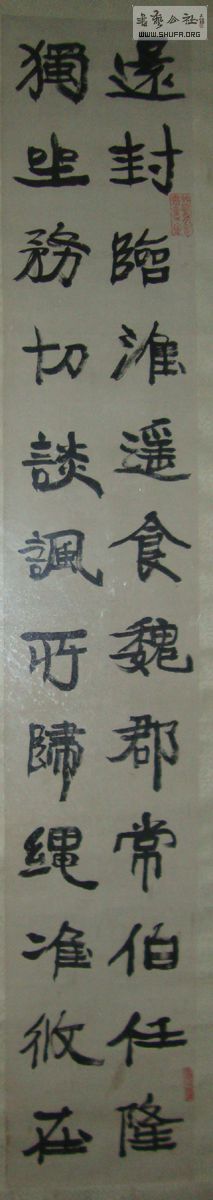 書藝公社
WWW.SHUFR.ORG
還封臨淮遥食魏郡常伯任隆
獨坐務切談諷所歸繩准攸在